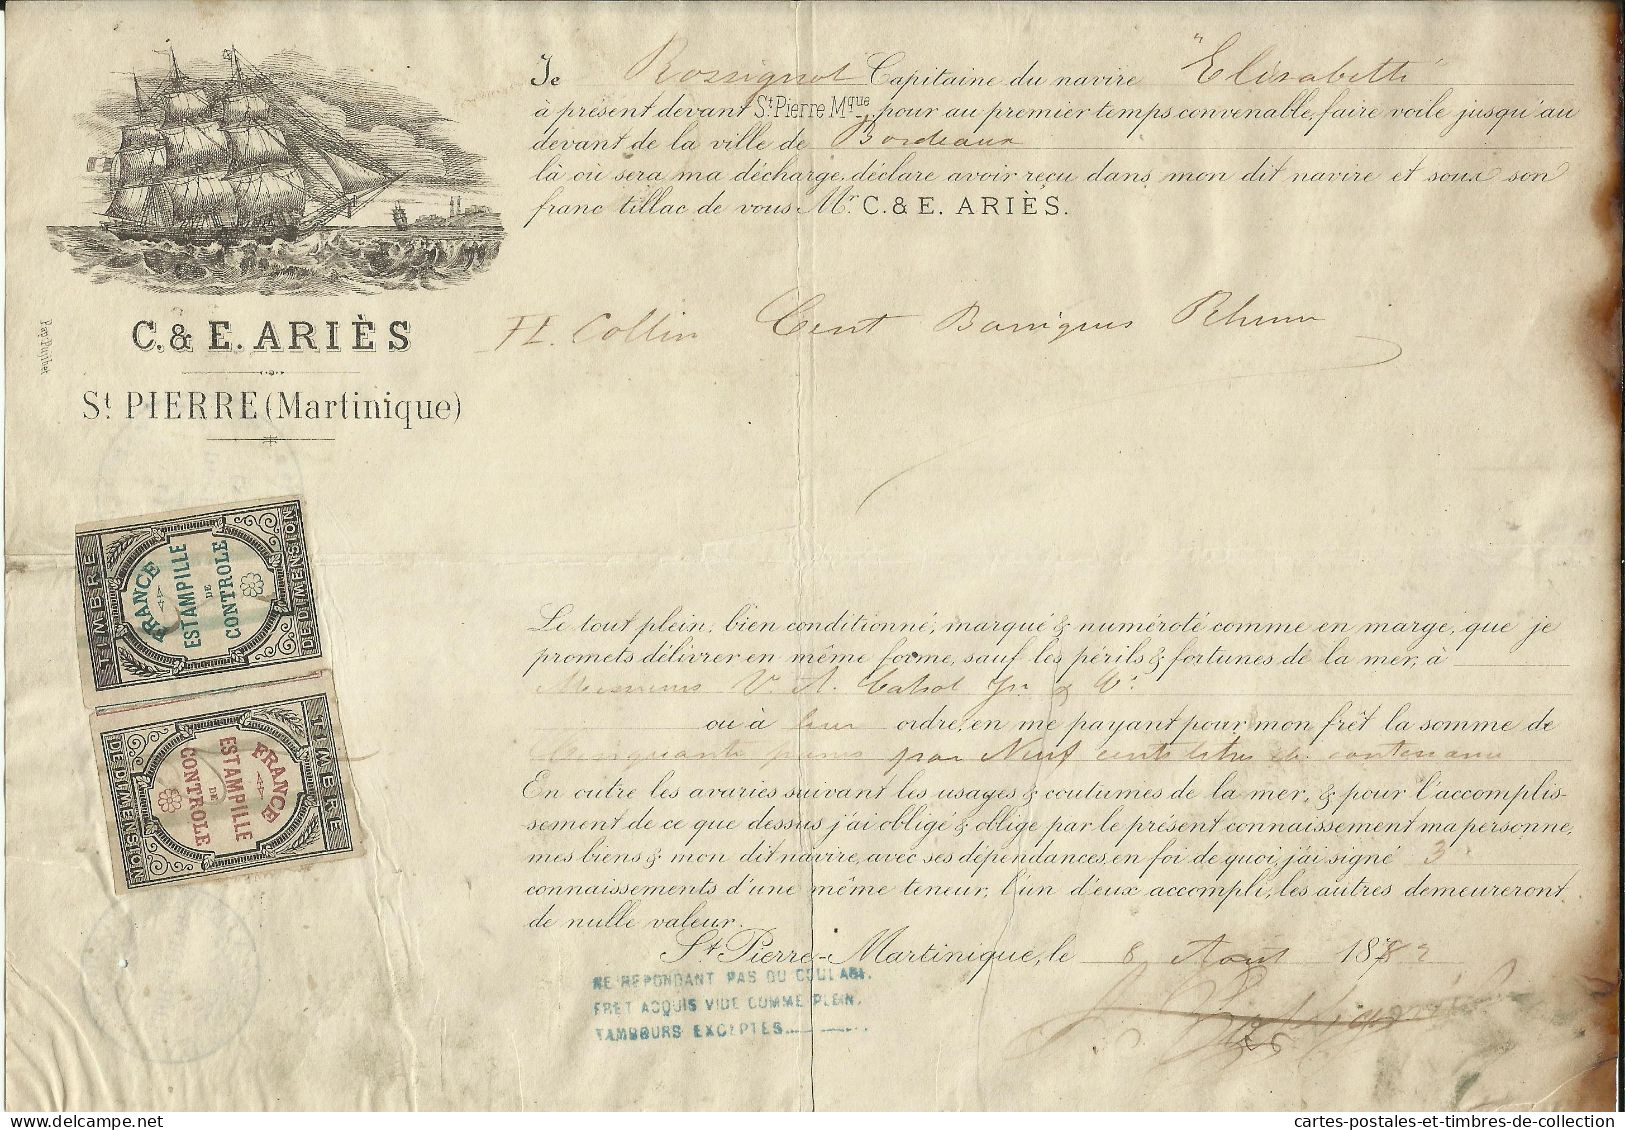 Je Rossignol Capitaine du navire "Elisabeth"
à présent devant St. Pierre Mque, pour au premier temps convenable, faire voile jusqu'au
devant de la ville de Bordeaux
là où sera ma décharge, déclare avoir reçu dans mon dit navire et sous son
franc tillac de vous Mr. C. & E. ARIÈS.
C. & E. ARIÈS
St. PIERRE (Martinique)
Collin Cent Barriques Rhum
TIMBRE
FRANCE
ESTAMPILLE
DE
CONTROLE
DE DIMENSION
TIMBRE
FRANCE
ESTAMPILLE
DE
CONTROLE
DE DIMENSION
Le tout plein, bien conditionné, marqué & numéroté comme en marge, que je
promets délivrer en même forme, sauf les périls & fortunes de la mer, à
Messieurs V. A.
ou à leur ordre, en me payant pour mon frêt la somme de
Cinquante francs par Neuf cents litres de contenance
En outre les avaries suivant les usages & coutumes de la mer, & pour l'accomplis-
sement de ce que dessus j'ai obligé & oblige par le présent connaissement ma personne,
mes biens & mon dit navire, avec ses dépendances, en foi de quoi, j'ai signé 3
connaissements d'une même teneur, l'un d'eux accompli, les autres demeureront
de nulle valeur.
St. Pierre-Martinique, le 8 Août 1882
NE REPONDANT PAS DU COULAGE.
FRET ACQUIS VIDE COMME PLEIN.
TAMBOURS EXCEPTES
cartes-postales-et-timbres-de-collection
© delcampe.net